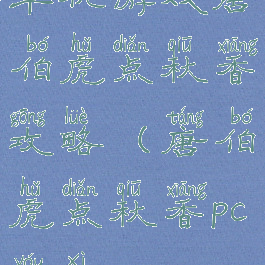 单机游戏唐
bó hǔ diǎn qiū xiāng
伯虎点秋香
gōng lüè táng bó
攻略（唐伯
hǔ diǎn qiū xiāng
虎点秋香pc
yóu xì